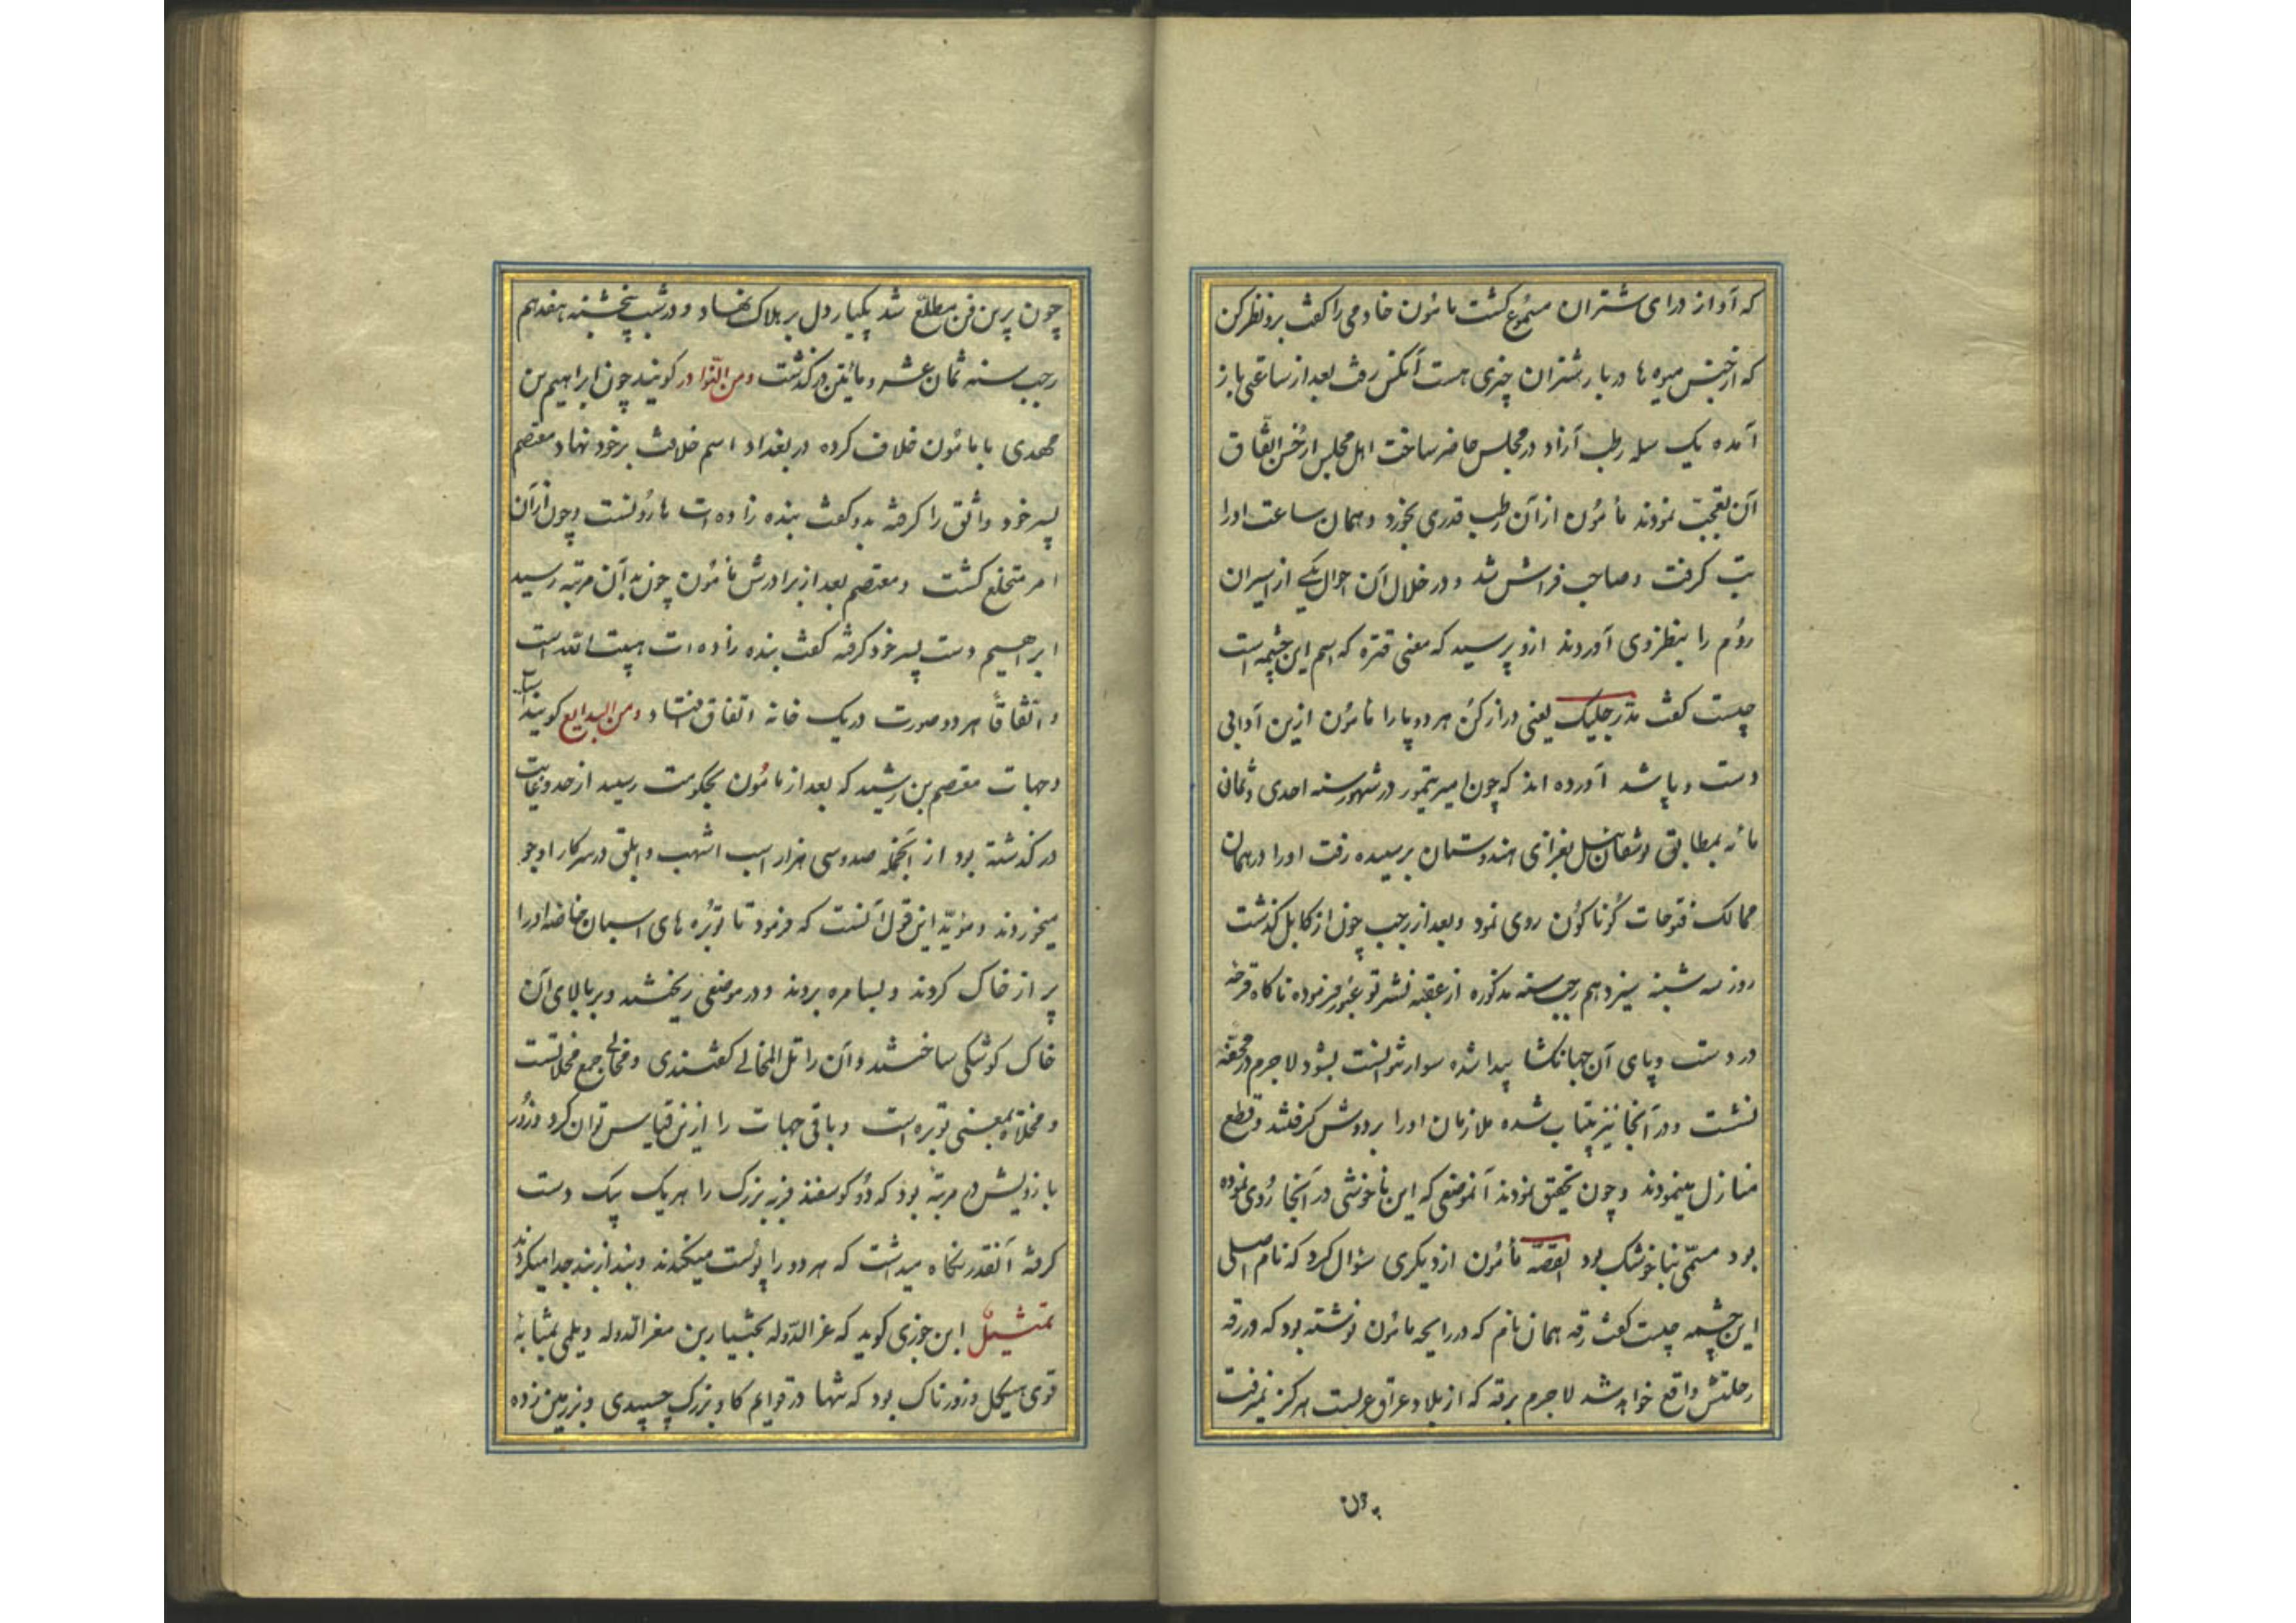 که آواز درای شتران مسموع کشت مامون خادمی را کفت برو نظر کن
که از جنس میوه ها در بار شتران چیزی هست آنکس رفت بعد از ساعتی باز
آمده یک سله رطب آزاد در مجلس حاضر ساخت اهل مجلس از حسن اتفاق
آن تعجب نمودند مأمون از آن رطب قدری بخورد و همان ساعت او را
تب کرفت و صاحب فراش شد و در خلال آن احوال یکی از اسیران
روم را بنظر وی آوردند ازو پرسید که معنی قتره که اسم این چشمه است
چیست کفت مد رجلیک یعنی دراز کن هر دو پا را مامون ازین آدابی
دست و پا شد آورده اند که چون امیر تیمور در شهور سنه احدی و ثمان
مأئه بمطابق توشقان ئیل بغزای هندوستان برسیده رفت او را در همان
ممالک فتوحات کوناکون روی نمود و بعد از رجب چون از کابل کذشت
روز سه شنبه سیزدهم رجب سنه مذکوره از عقبه نشرتو عبور فرموده ناکاه قرحه
در دست و پای آن جهانکشا پیدا شده سوار نتوانست بشود لاجرم در محفه
نشست و در آنجا نیز بیتاب شده ملازمان او را بر دوش کرفتند و قطع
منازل مینمودند و چون تحقیق نمودند آنموضعی که این ناخوشی در آنجا روی نموده
بود مسمی بناخوشک بود القصه مأمون از دیکری سؤال کرد که نام اصلی
این چشمه چیست کفت رقه همان نام که در رایجه مامون نوشته بود که در رقه
رحلتش واقع خواهد شد لاجرم برقه که از بلاد عراق عربست هرکز نمیرفت
چون
چون برین فن مطلع شد یکبار دل بر هلاک نهاد و در شب پنجشنبه هفدهم
رجب سنه ثمان عشر و مائتین درکذشت ومن النوادر کویند چون ابراهیم بن
مهدی با مامون خلاف کرده در بغداد اسم خلافت بر خود نهاد معتصم
پسر خود واثق را کرفته بدو کفت بنده زاده ات هارونست و چون از آن
امر متخلع کشت و معتصم بعد از برادرش مامون چون بدآن مرتبه رسید
ابراهیم دست پسر خود کرفته کفت بنده زاده ات هبت الله است
و اتفاقا هر دو صورت در یک خانه اتفاق افتاد ومن البدایع کویند اسباب
و جهات معتصم بن رشید که بعد از مامون بحکومت رسید از حد و نهایت
در کذشته بود از آنجمله صد و سی هزار اسب اشهب و ابلق در سرکار او جو
میخوردند و مؤید این قول آنست که فرمود تا توبره های اسبان خاصه او را
پر از خاک کردند و بسامره بردند و در موضعی ریختند و بر بالای آن
خاک کوشکی ساختند و آن را تل المخالی کفتندی و مخالی جمع مخلاتست
و مخلاة بمعنی توبره است و باقی جهات را ازین قیاس توان کرد و زور
بازویش در مرتبهٔ بود که دو کوسفند فربه بزرک را هر یک بیک دست
کرفته آنقدر نکاه میداشت که هر دو را پوست میکندند و بند از بند جدا میکردند
تمثیل ابن جوزی کوید که عز الدوله بختیار بن معز الدوله دیلمی بمثابهٔ
قوی هیکل و زورناک بود که تنها در قوایم کاو بزرک چسپیدی و بزمین زده